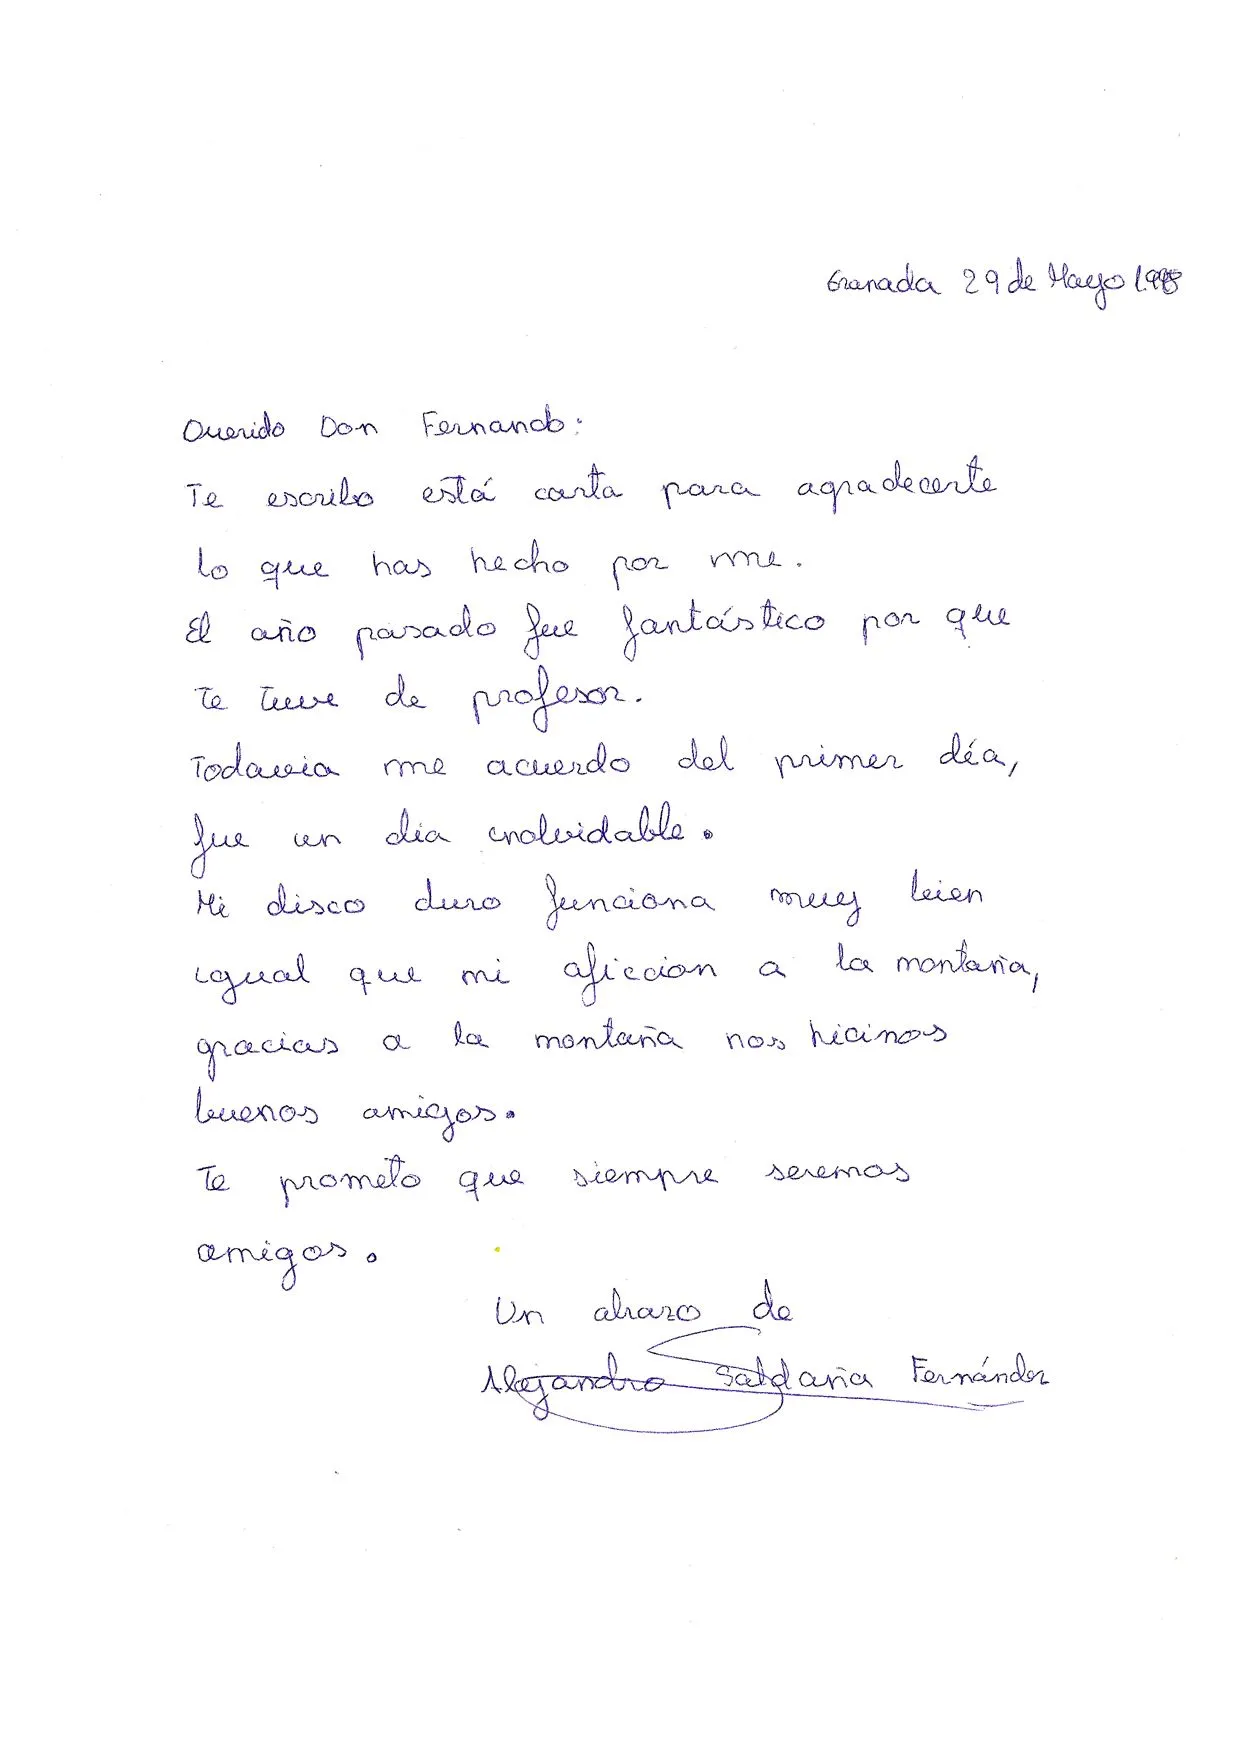 Granada 29 de Mayo 1.998
Querido Don Fernando:
Te escribo está carta para agradecerte
lo que has hecho por me.
El año pasado fue fantástico por que
te tuve de profesor.
Todavia me acuerdo del primer día,
fue un dia inolvidable.
Mi disco duro funciona muy bien
igual que mi aficcion a la montaña,
gracias a la montaña nos hicimos
buenos amigos.
Te prometo que siempre seremos
amigos.
Un abrazo de
Alejandro Saldaña Fernández